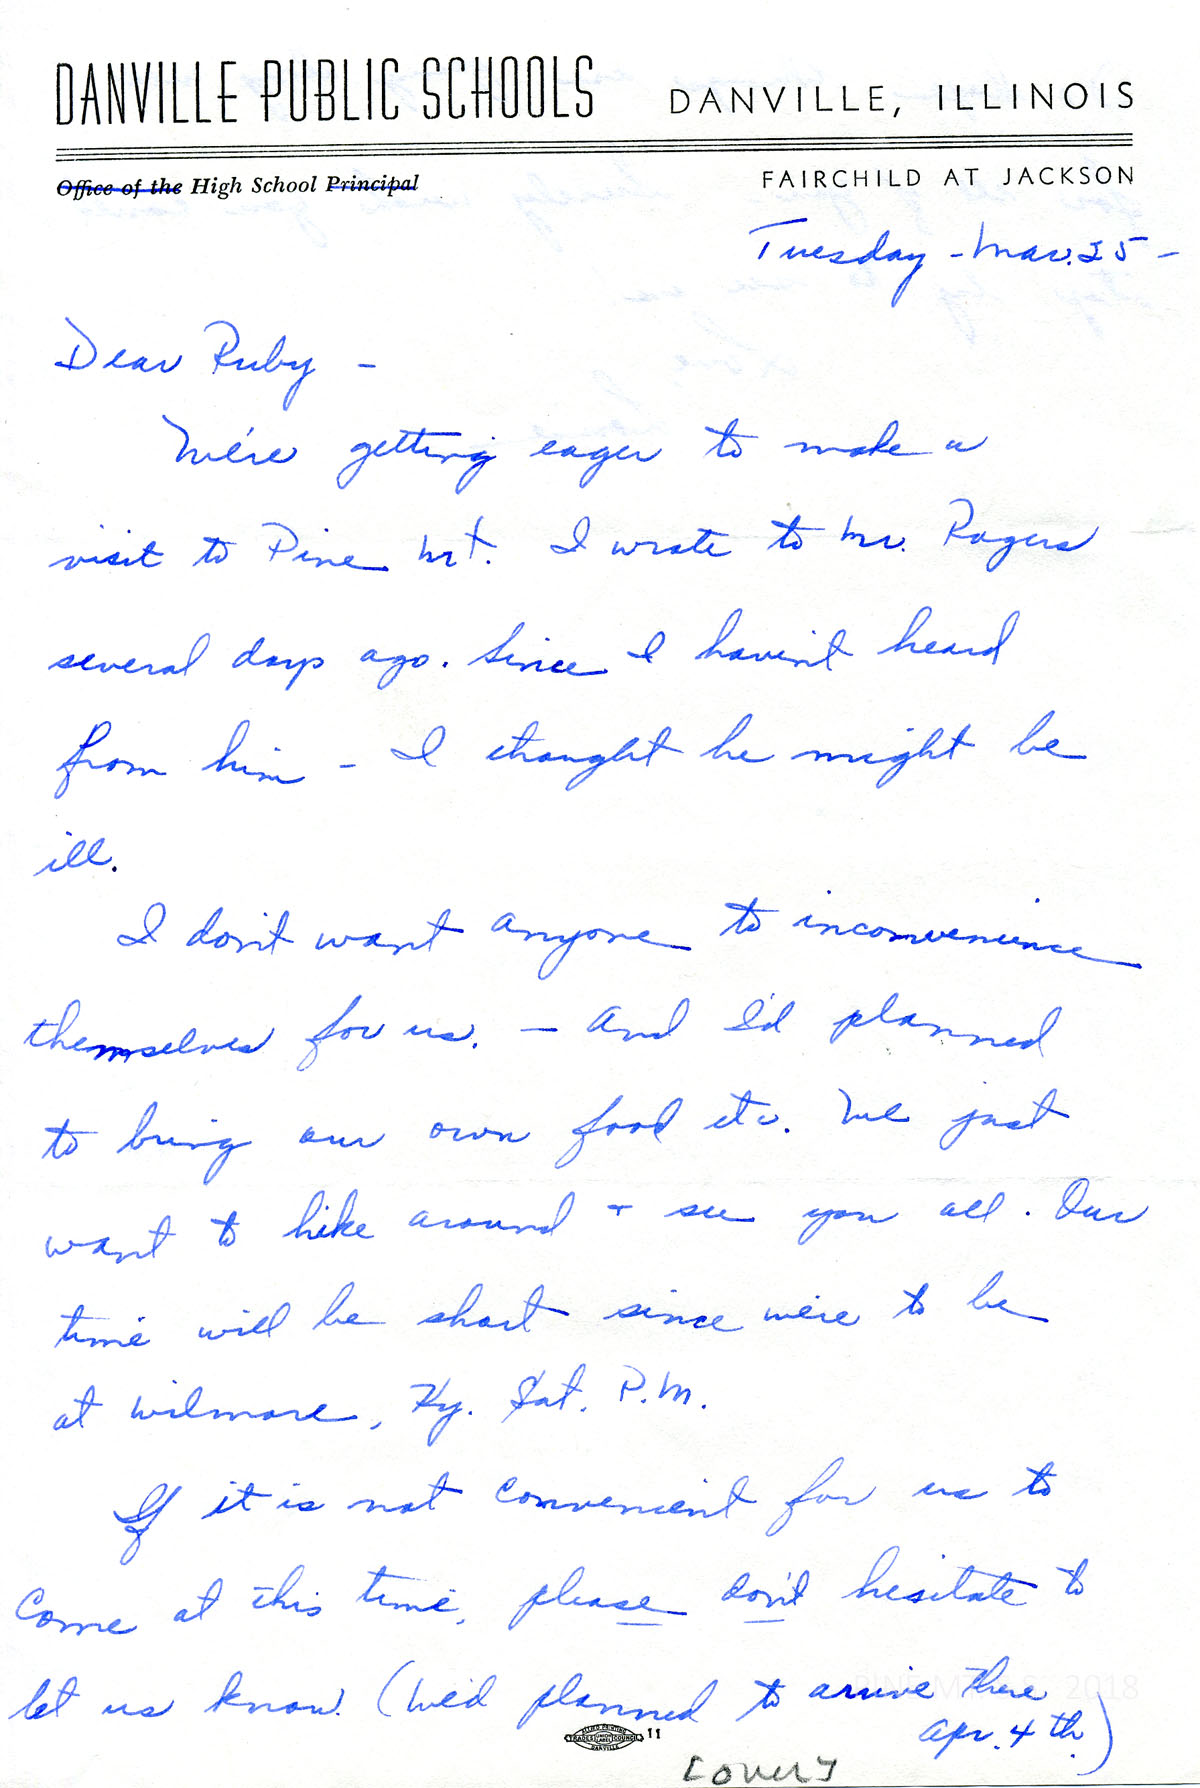 DANVILLE PUBLIC SCHOOLS DANVILLE, ILLINOIS
Office of the High School Principal FAIRCHILD AT JACKSON
Tuesday - Mar. 25 -
Dear Ruby -
We're getting eager to make a
visit to Pine Mt. I wrote to Mr. Rogers
several days ago. Since I haven't heard
from him - I thought he might be
ill.
I don't want anyone to inconvenience
themselves for us. - And I'd planned
to bring our own food etc. We just
want to hike around + see you all. Our
time will be short since we're to be
at Wilmore, Ky. Sat. P.M.
If it is not convenient for us to
come at this time, please don't hesitate to
let us know. (We'd planned to arrive there
Apr. 4th.)
ALLIED PRINTING
TRADES UNION LABEL COUNCIL 11
DANVILLE
[over]
2018